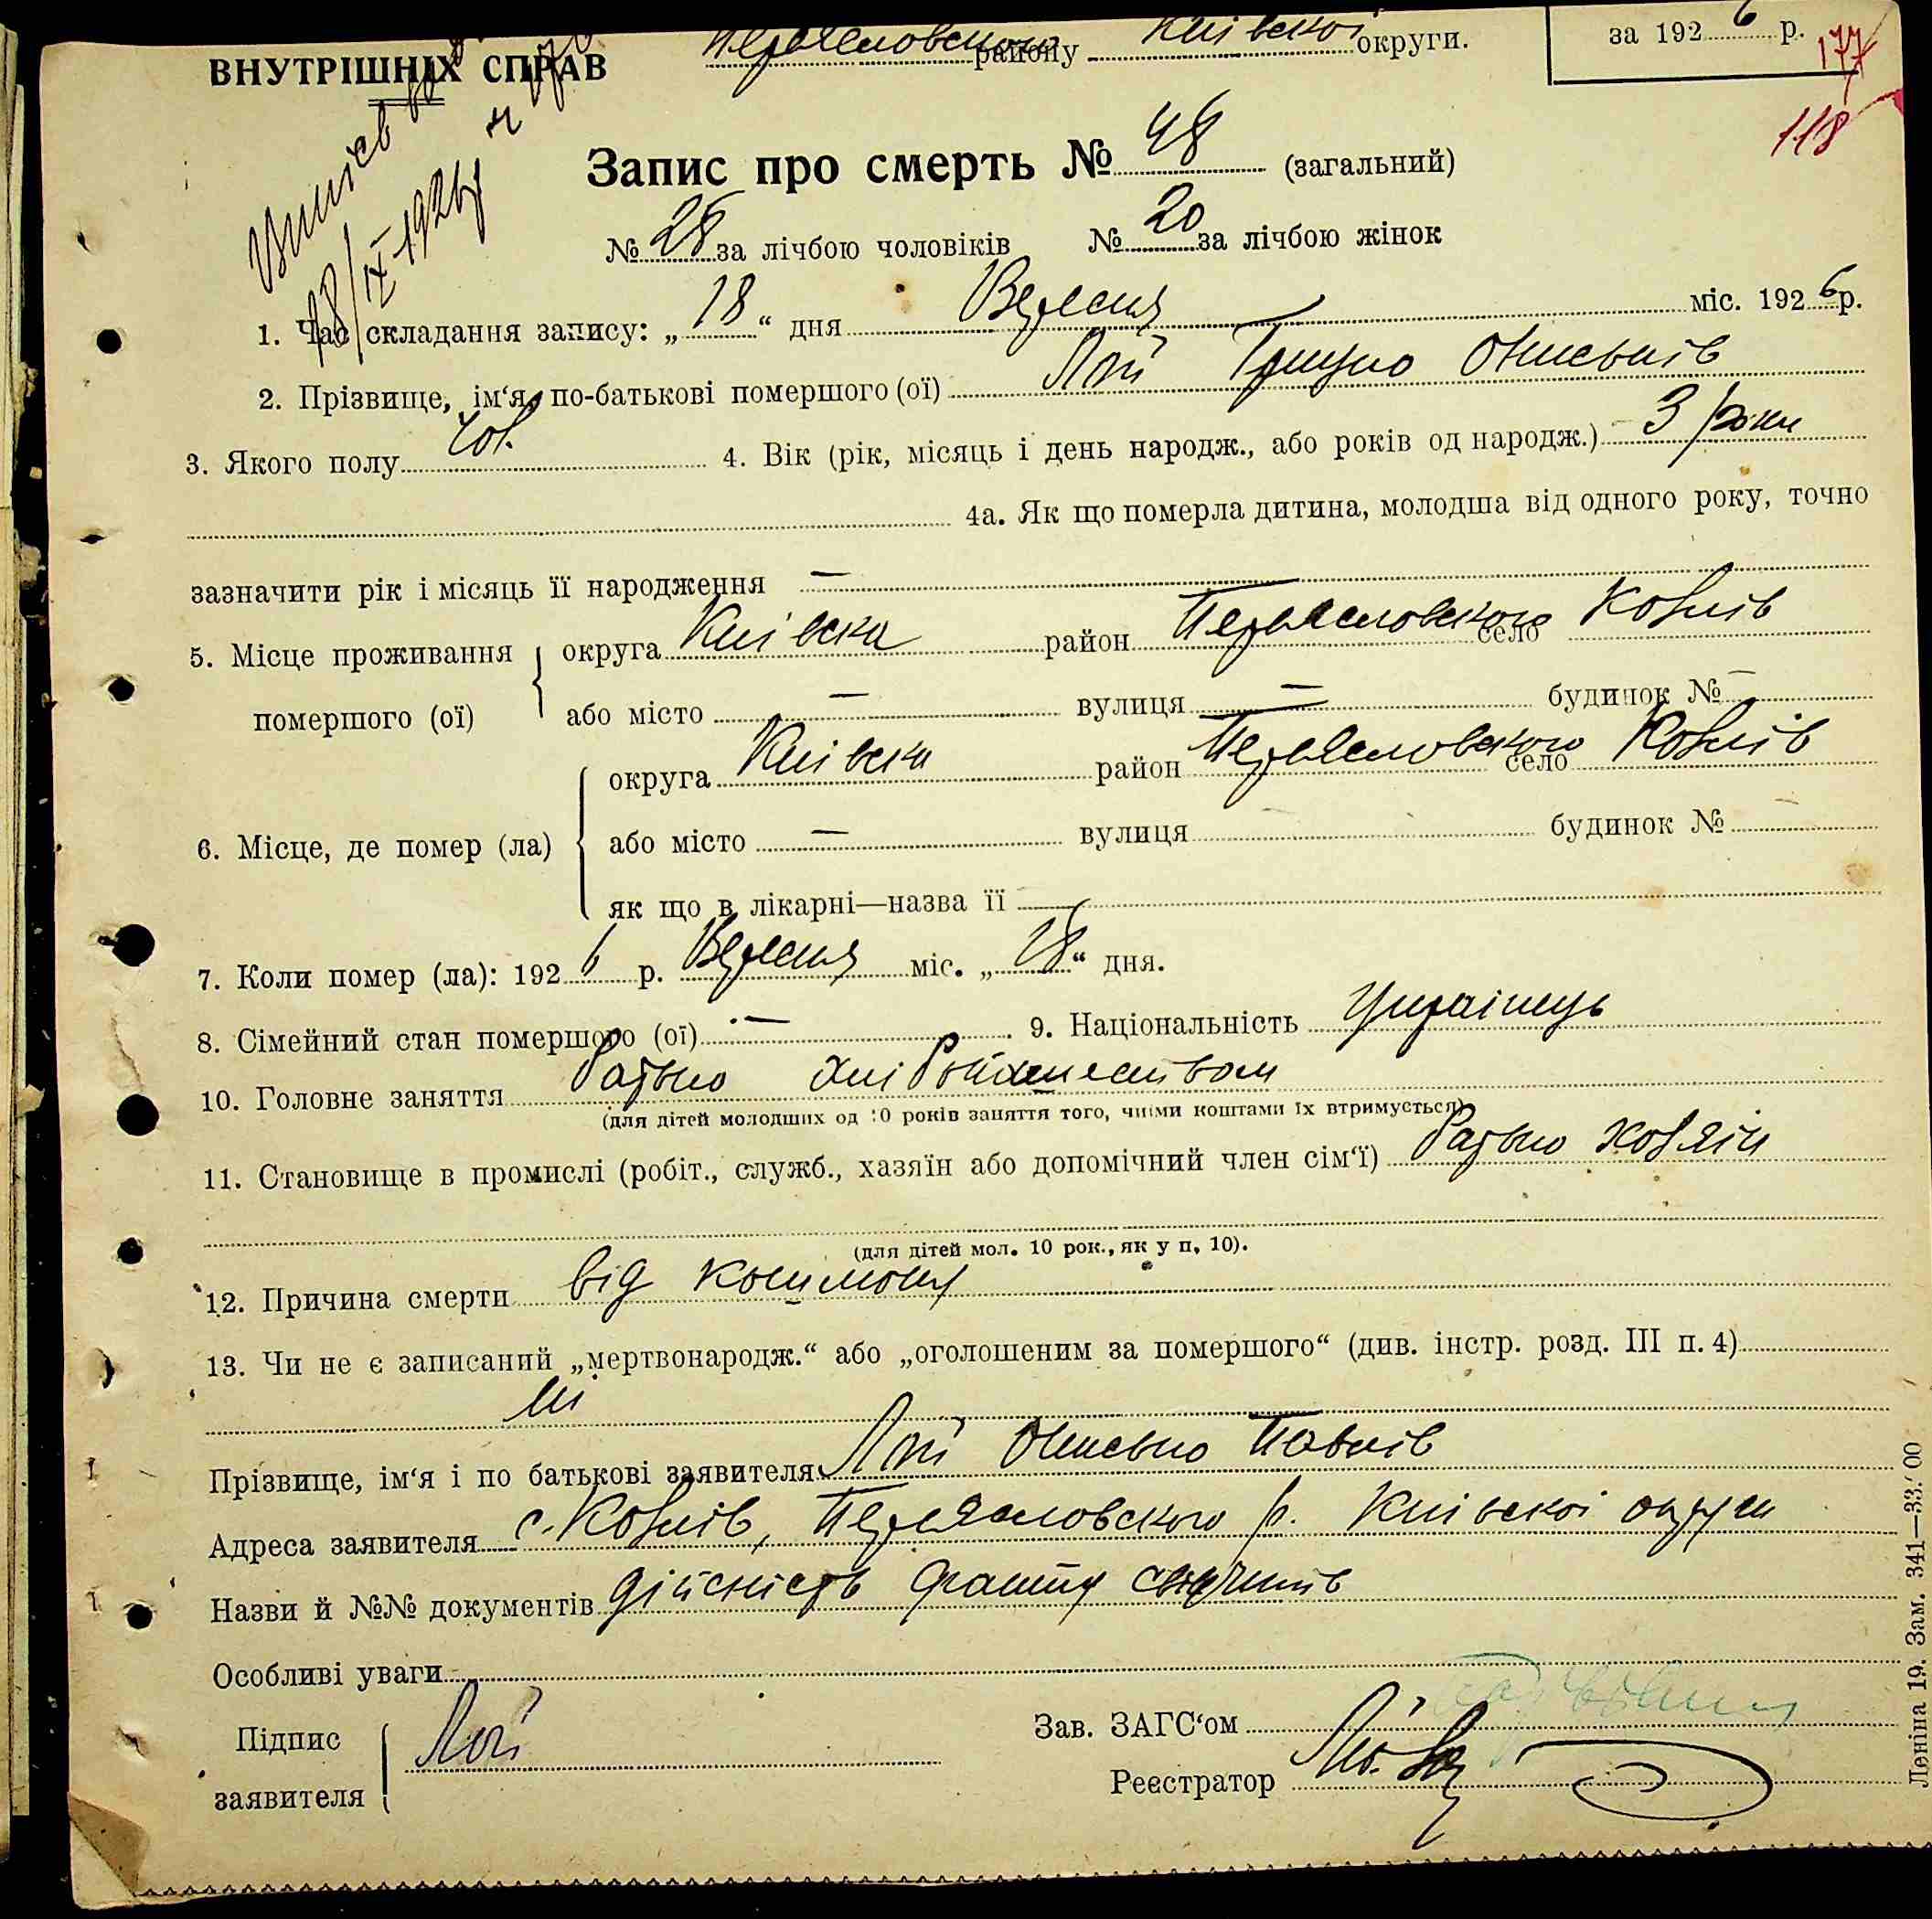 ВНУТРІШНІХ СПРАВ Переяславського району Київської округи. за 1926 р. 177
118
Запис про смерть № 48 (загальний)
№ 28 за лічбою чоловіків № 20 за лічбою жінок
18/IX-1926р
1. Час складання запису: „18“ дня Вересня міс. 1926 р.
2. Прізвище, ім‘я, по-батькові помершого (ої) Лой Грицко
3. Якого полу чол. 4. Вік (рік, місяць і день народж., або років од народж.) 3 роки
4а. Як що померла дитина, молодша від одного року, точно
зазначити рік і місяць її народження —
5. Місце проживання помершого (ої) округа Київска район Переясловского село Козлів
або місто — вулиця — будинок № —
6. Місце, де помер (ла) округа Київска район Переясловского село Козлів
або місто — вулиця будинок №
як що в лікарні—назва її —
7. Коли помер (ла): 1926 р. Вересня міс. „18“ дня.
8. Сімейний стан помершого (ої) — 9. Національність Українець
10. Головне заняття батько
(для дітей молодших од 10 років заняття того, чиїми коштами їх втримується)
11. Становище в промислі (робіт., служб., хазяїн або допомічний член сім‘ї) батько хозяїн
(для дітей мол. 10 рок., як у п. 10).
12. Причина смерти від
13. Чи не є записаний „мертвонародж.“ або „оголошеним за помершого“ (див. інстр. розд. III п. 4)
ні
Прізвище, ім‘я і по батькові заявителя Лой Павлів
Адреса заявителя с. Козлів, Переясловского р. Київскої округи
Назви й №№ документів дійсність факту
Особливі уваги
Підпис заявителя Лой
Зав. ЗАГС‘ом
Реєстратор
Леніна 19. Зам. 341—33.‘00